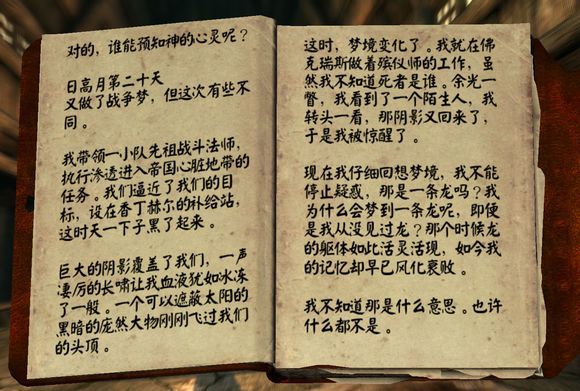 对的，谁能预知神的心灵呢？
日高月第二十天
又做了战争梦，但这次有些不
同。
我带领一小队先祖战斗法师，
执行渗透进入帝国心脏地带的
任务。我们逼近了我们的目
标，设在香丁赫尔的补给站，
这时天一下子黑了起来。
巨大的阴影覆盖了我们，一声
凄厉的长啸让我血液犹如冰冻
了一般。一个可以遮蔽太阳的
黑暗的庞然大物刚刚飞过我们
的头顶。
这时，梦境变化了。我就在佛
克瑞斯做着殡仪师的工作，虽
然我不知道死者是谁。余光一
瞥，我看到了一个陌生人，我
转头一看，那阴影又回来了，
于是我被惊醒了。
现在我仔细回想梦境，我不能
停止疑惑，那是一条龙吗？我
为什么会梦到一条龙呢，即便
是我从没见过龙？那个时候龙
的躯体如此活灵活现，如今我
的记忆却早已风化衰败。
我不知道那是什么意思。也许
什么都不是。